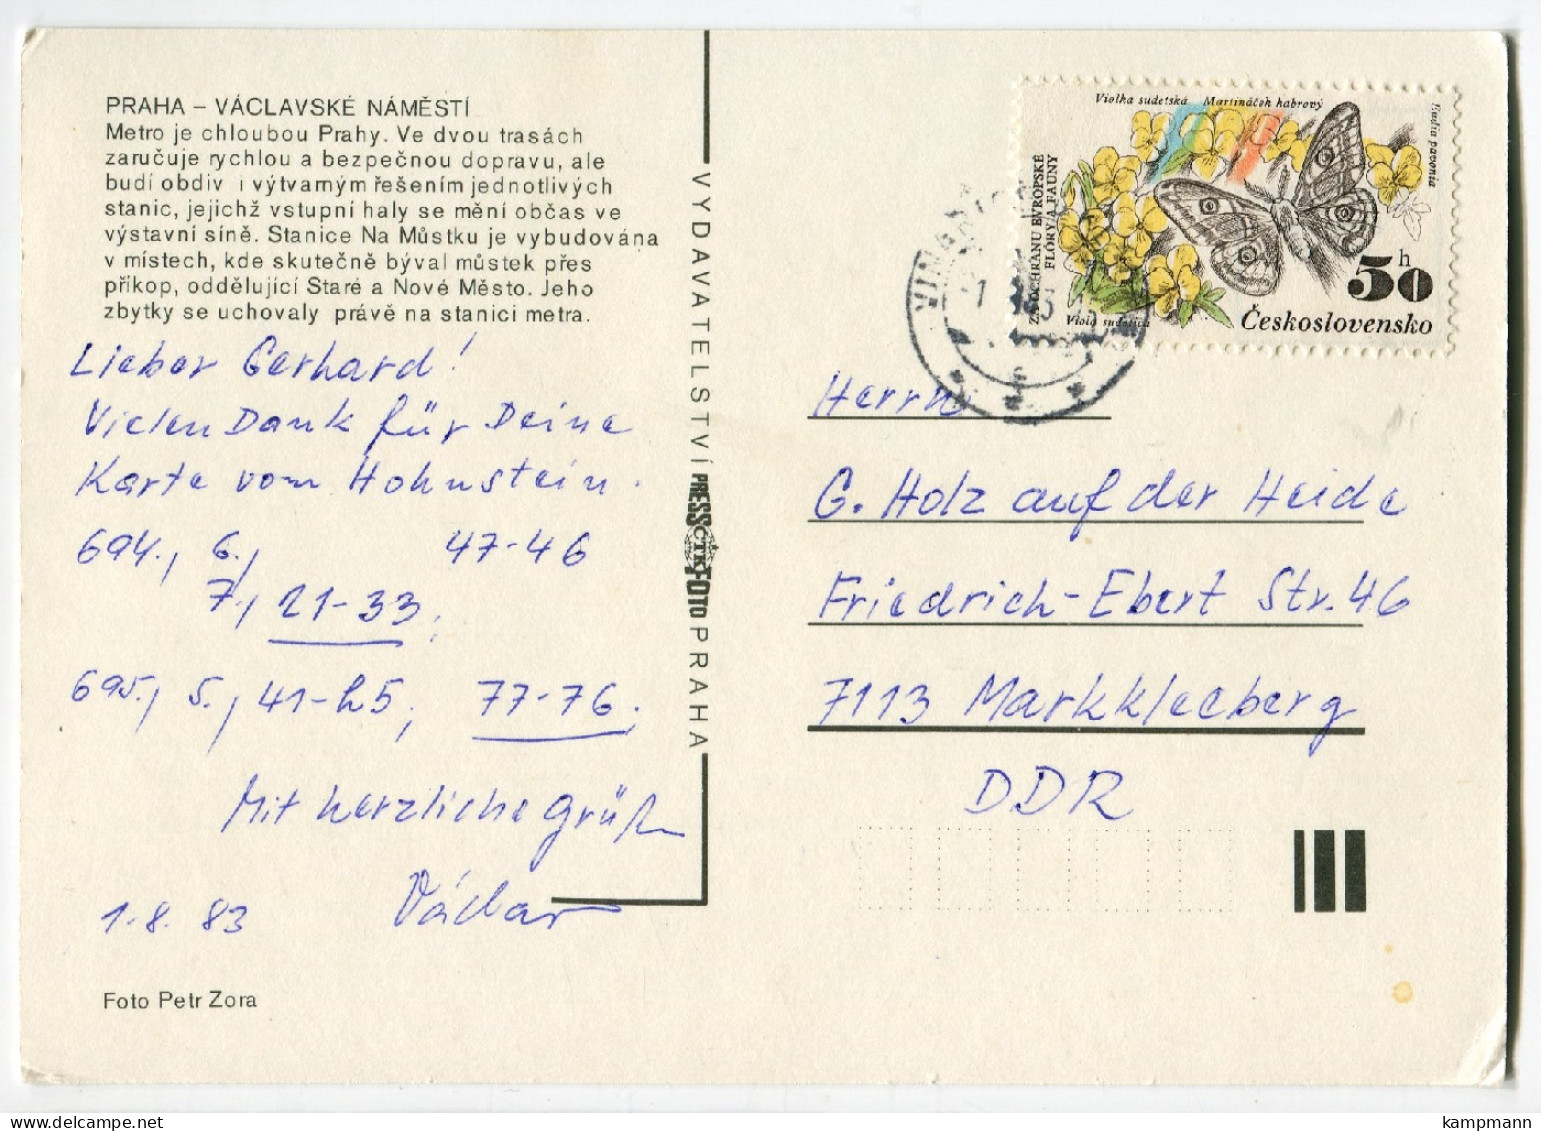 PRAHA – VÁCLAVSKÉ NÁMĚSTÍ
Metro je chloubou Prahy. Ve dvou trasách
zaručuje rychlou a bezpečnou dopravu, ale
budí obdiv i výtvarným řešením jednotlivých
stanic, jejichž vstupní haly se mění občas ve
výstavní síně. Stanice Na Můstku je vybudována
v místech, kde skutečně býval můstek přes
příkop, oddělující Staré a Nové Město. Jeho
zbytky se uchovaly právě na stanici metra.
Lieber Gerhard!
Vielen Dank für Deine
Karte vom Hohnstein.
694., 6., 47-46
7., 21-33;
695., 5., 41-h5; 77-76;
Mit herzliche Grüße
Václav
1.8.83
Foto Petr Zora
VYDAVATELSTVÍ
PRESSFOTO
ČTK
PRAHA
Violka sudetská Martináček habrový
Eudia pavonia
ZA OCHRANU EVROPSKÉ
FLÓRY A FAUNY
Viola sudetica
50 h
Československo
Herrn
G. Holz auf der Heide
Friedrich-Ebert Str. 46
7113 Markkleeberg
DDR
kampmann